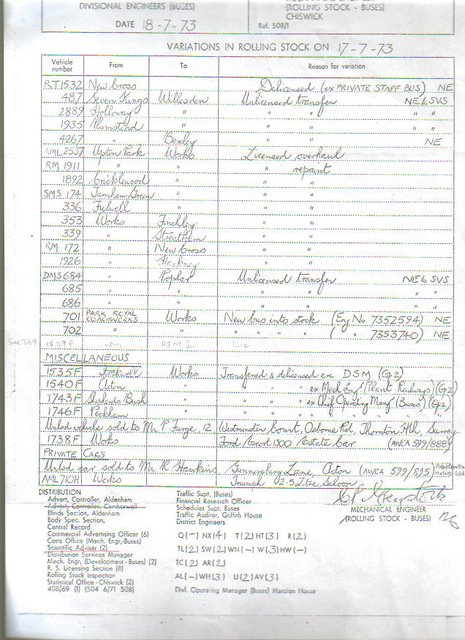 DIVISIONAL ENGINEERS (BUSES)
(ROLLING STOCK - BUSES)
CHISWICK
DATE 18-7-73 Ref. 508/1
VARIATIONS IN ROLLING STOCK ON 17-7-73
Vehicle number From To Reason for variation
RT1532 New Cross Delicensed (ex PRIVATE STAFF BUS) NE
487 Seven Kings Willesden Unlicensed transfer NE & SVS
2889 Holloway " " " "
1935 Plumstead " " " "
4267 " Bexley " NE
SML2537 Upton Park Works Licensed overhaul
RM 1911 " " " repaint
1892 Cricklewood " " "
SMS 174 Turnham Green " " "
336 Fulwell " " "
353 Works Finchley " "
339 " Streatham " "
RM 172 " New Cross " "
1926 " Hackney " "
DMS684 " Poplar Unlicensed transfer NE & SVS
685 " " " "
686 " " " "
701 PARK ROYAL COACHWORKS Works New bus into stock (Eng No 7352594) NE
702 " " " " ( " 7353740) NE
MISCELLANEOUS
1535F Works Transferred & delicensed ex DSM (G2)
1540F Acton " " ex Mech Eng (Plant Railways) (G2)
1743F Shepherds Bush " " ex Chief Operating Man (Buses) (G2)
1746F Peckham " "
vehicle sold to Mr P. 12, Westminster Court, Osborne Rd, Thornton Hth, Surrey
1738F Works Ford Escort 1300 Estate Car (AWCA 599/888)
PRIVATE CARS
car sold to Mr R. Hawkins, Gunnersbury Lane, Acton (AWCA 599/895)
AML710H Works Triumph 2.5 Litre Saloon
DISTRIBUTION
Advert, Controller, Aldenham
Advert, Controller, Camberwell
Blinds Section, Aldenham
Body Spec. Section,
Central Record
Commercial Advertising Officer (6)
Costs Office (Mech. Engr.-Buses)
Scientific Adviser (2)
*Distribution Services Manager
Mech. Engr, (Development - Buses) (2)
R. S. Licensing Section (8)
Rolling Stock Inspection
Statistical Office - Chiswick (2)
408/69 (1) (504 6/71 508)
Traffic Supt. (Buses)
Financial Research Officer
Schedules Supt. Buses
Traffic Auditor, Griffith House
District Engineers
Q(-) NX(4) T(2) HT(3) R(2)
TL(2) SW(2) WN(-) W(3) HW(-)
TC(2) AR(2)
AL(-) WH(3) U(2) AV(3)
Divl. Operating Manager (Buses) Mansion House
MECHANICAL ENGINEER
(ROLLING STOCK - BUSES)